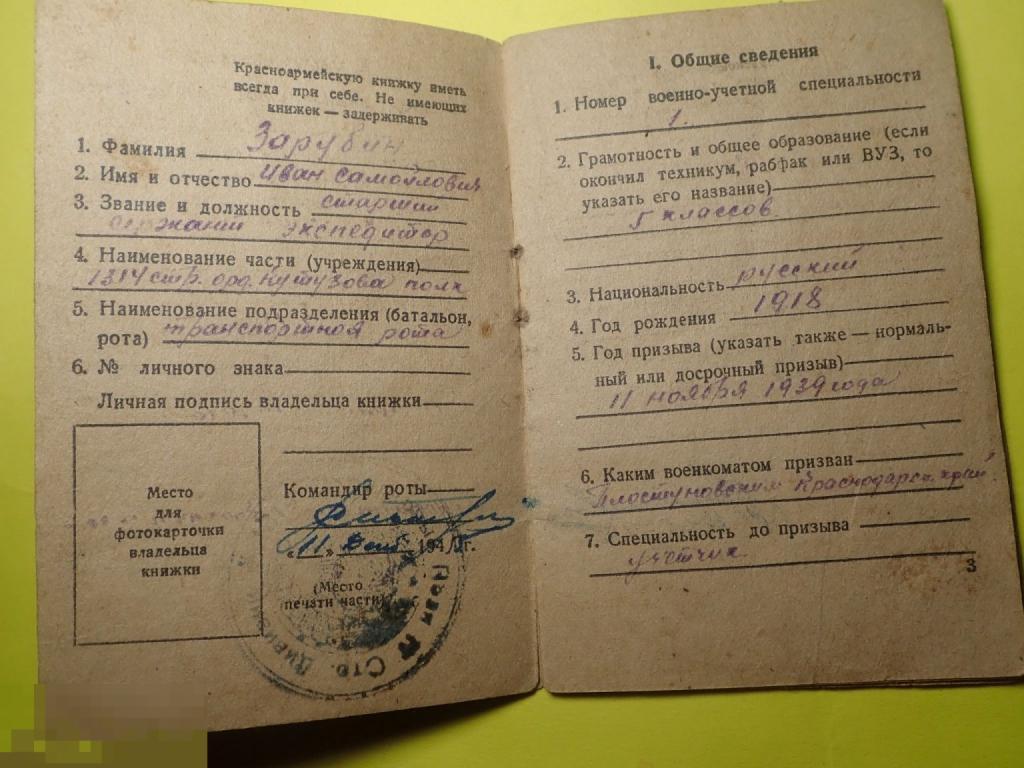 Красноармейскую книжку иметь
всегда при себе. Не имеющих
книжек — задерживать
1. Фамилия Зарубин
2. Имя и отчество Иван Самойлович
3. Звание и должность старший
сержант экспедитор
4. Наименование части (учреждения)
1314 стр. орд. Кутузова полк
5. Наименование подразделения (батальон,
рота) транспортная рота
6. № личного знака
Личная подпись владельца книжки
Место
для
фотокарточки
владельца
книжки
Командир роты
„11" 194 г.
(Место
печати части)
Стр. Дивизии
I. Общие сведения
1. Номер военно-учетной специальности
1.
2. Грамотность и общее образование (если
окончил техникум, рабфак или ВУЗ, то
указать его название)
5 классов
3. Национальность русский
4. Год рождения 1918
5. Год призыва (указать также — нормаль-
ный или досрочный призыв)
11 ноября 1939 года
6. Каким военкоматом призван
Пластуновским Краснодарск. край
7. Специальность до призыва
учетчик
3